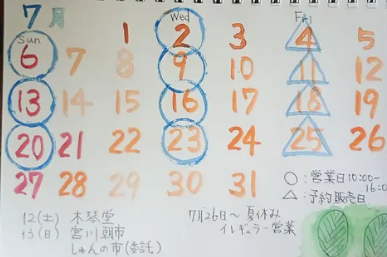 7月
Sun Wed Fri
1 2 3 4 5
6 7 8 9 10 11 12
13 14 15 16 17 18 19
20 21 22 23 24 25 26
27 28 29 30 31
○:営業日10:00-16:00
△:予約販売日
12(土) 木琴堂
13(日) 宮川朝市
しゅんの市(委託)
7月26日〜 夏休み
イレギュラー営業